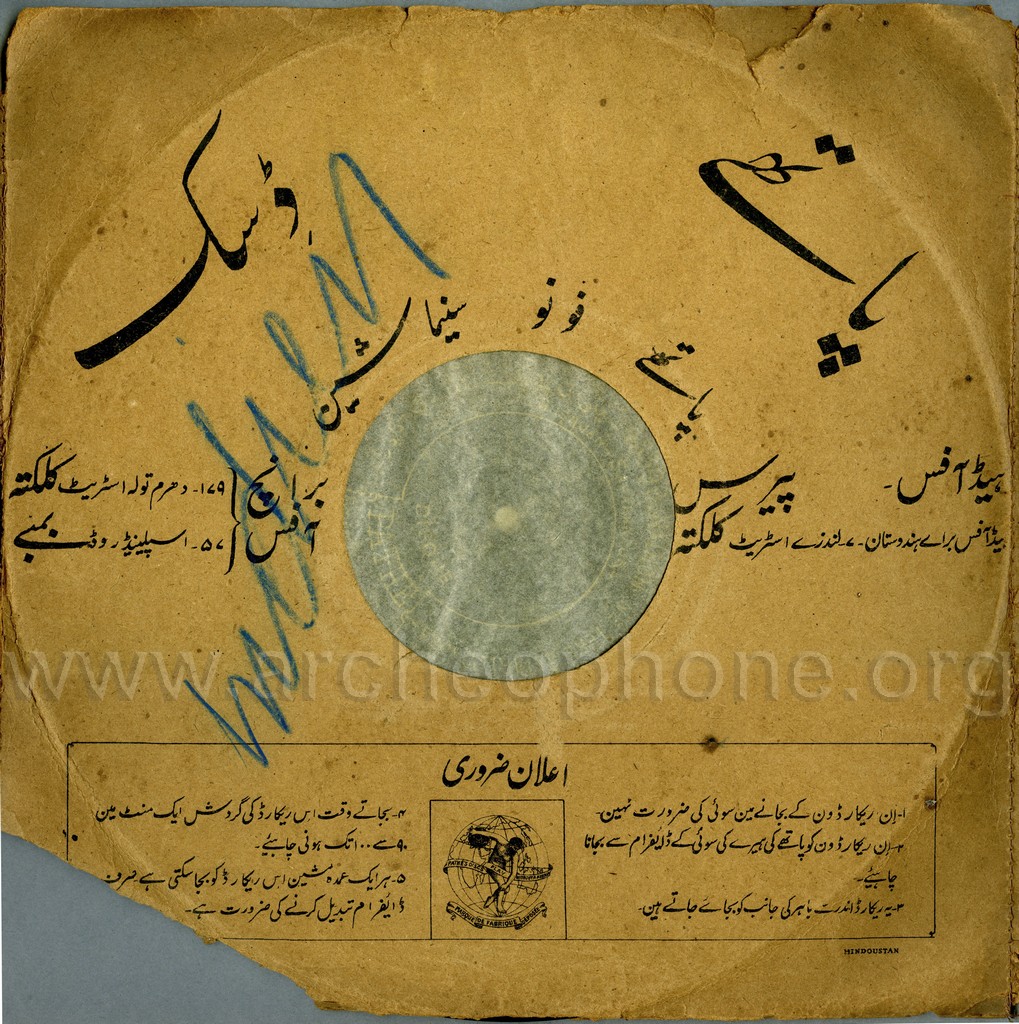 پاتھے ڈِسک
پاتھے فونو سنیما شین
ہیڈ آفس۔ پیرس
ہیڈ آفس برائے ہندوستان۔ ۷۔ لنڈزے اسٹریٹ کلکتہ
برانچ آفس
۱۷۹۔ دھرم تولہ اسٹریٹ کلکتہ
۵۷۔ اسپلینڈ روڈ بمبے
www.archeophone.org
اعلان ضروری
۱۔ اِن ریکارڈون کے بجانے مین سوئی کی ضرورت نہین۔
۲۔ اِن ریکارڈون کو پاتھے کی ہیرے کی سوئی کے ڈایفرام سے بجانا
چاہیئے۔
۳۔ یہ ریکارڈ اندر سے باہر کی جانب کو بجائے جاتے ہین۔
۴۔ بجاتے وقت اس ریکارڈ کی گردش ایک منٹ مین
۹۰ سے ۱۰۰ تک ہونی چاہیئے۔
۵۔ ہر ایک عمدہ مشین اِس ریکارڈ کو بجا سکتی ہے صرف
ڈایفرام تبدیل کرنے کی ضرورت ہے۔
MARQUE DE FABRIQUE DEPOSÉE
HINDOUSTAN